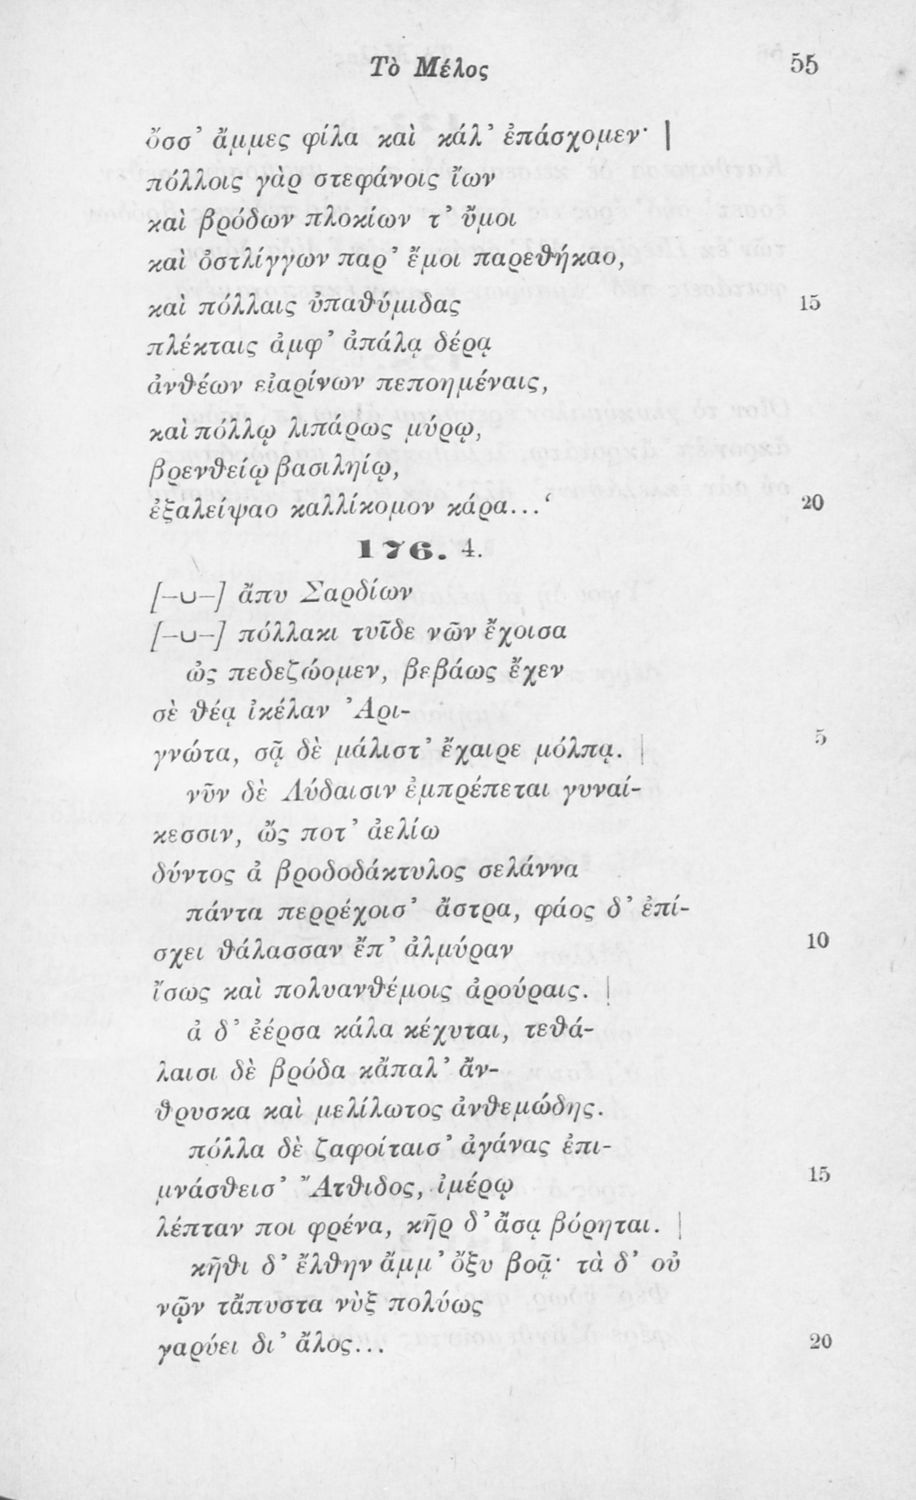 Τὸ Μέλος 55
ὄσσ’ ἄμμες φίλα καὶ κάλ’ ἐπάσχομεν· |
πόλλοις γὰρ στεφάνοις ἴων
καὶ βρόδων πλοκίων τ’ ὔμοι
καὶ ὀστλίγγων παρ’ ἔμοι παρεθήκαο,
καὶ πόλλαις ὐπαθύμιδας 15
πλέκταις ἀμφ’ ἀπάλᾳ δέρᾳ
ἀνθέων εἰαρίνων πεποημέναις,
καὶ πόλλῳ λιπάρως μύρῳ,
βρενθείῳ βασιληίῳ,
ἐξαλείψαο καλλίκομον κάρα...‘ 20
176. 4.
[–∪–] ἄπυ Σαρδίων
[–∪–] πόλλακι τυῖδε νῶν ἔχοισα
ὠς πεδεζώομεν, βεβάως ἔχεν
σὲ θέᾳ ἰκέλαν Ἀρι-
γνώτα, σᾷ δὲ μάλιστ’ ἔχαιρε μόλπᾳ. | 5
νῦν δὲ Λύδαισιν ἐμπρέπεται γυναί-
κεσσιν, ὤς ποτ’ ἀελίω
δύντος ἀ βροδοδάκτυλος σελάννα
πάντα περρέχοισ’ ἄστρα, φάος δ’ ἐπί-
σχει θάλασσαν ἔπ’ ἀλμύραν 10
ἴσως καὶ πολυανθέμοις ἀρούραις. |
ἀ δ’ ἐέρσα κάλα κέχυται, τεθά-
λαισι δὲ βρόδα κἄπαλ’ ἄν-
θρυσκα καὶ μελίλωτος ἀνθεμώδης.
πόλλα δὲ ζαφοίταισ’ ἀγάνας ἐπι-
μνάσθεισ’ Ἄτθιδος, ἰμέρῳ 15
λέπταν ποι φρένα, κῆρ δ’ ἄσᾳ βόρηται. |
κῆθι δ’ ἔλθην ἄμμ’ ὄξυ βοᾷ· τὰ δ’ οὐ
νῷν τἄπυστα νὺξ πολύως
γαρύει δι’ ἄλος... 20